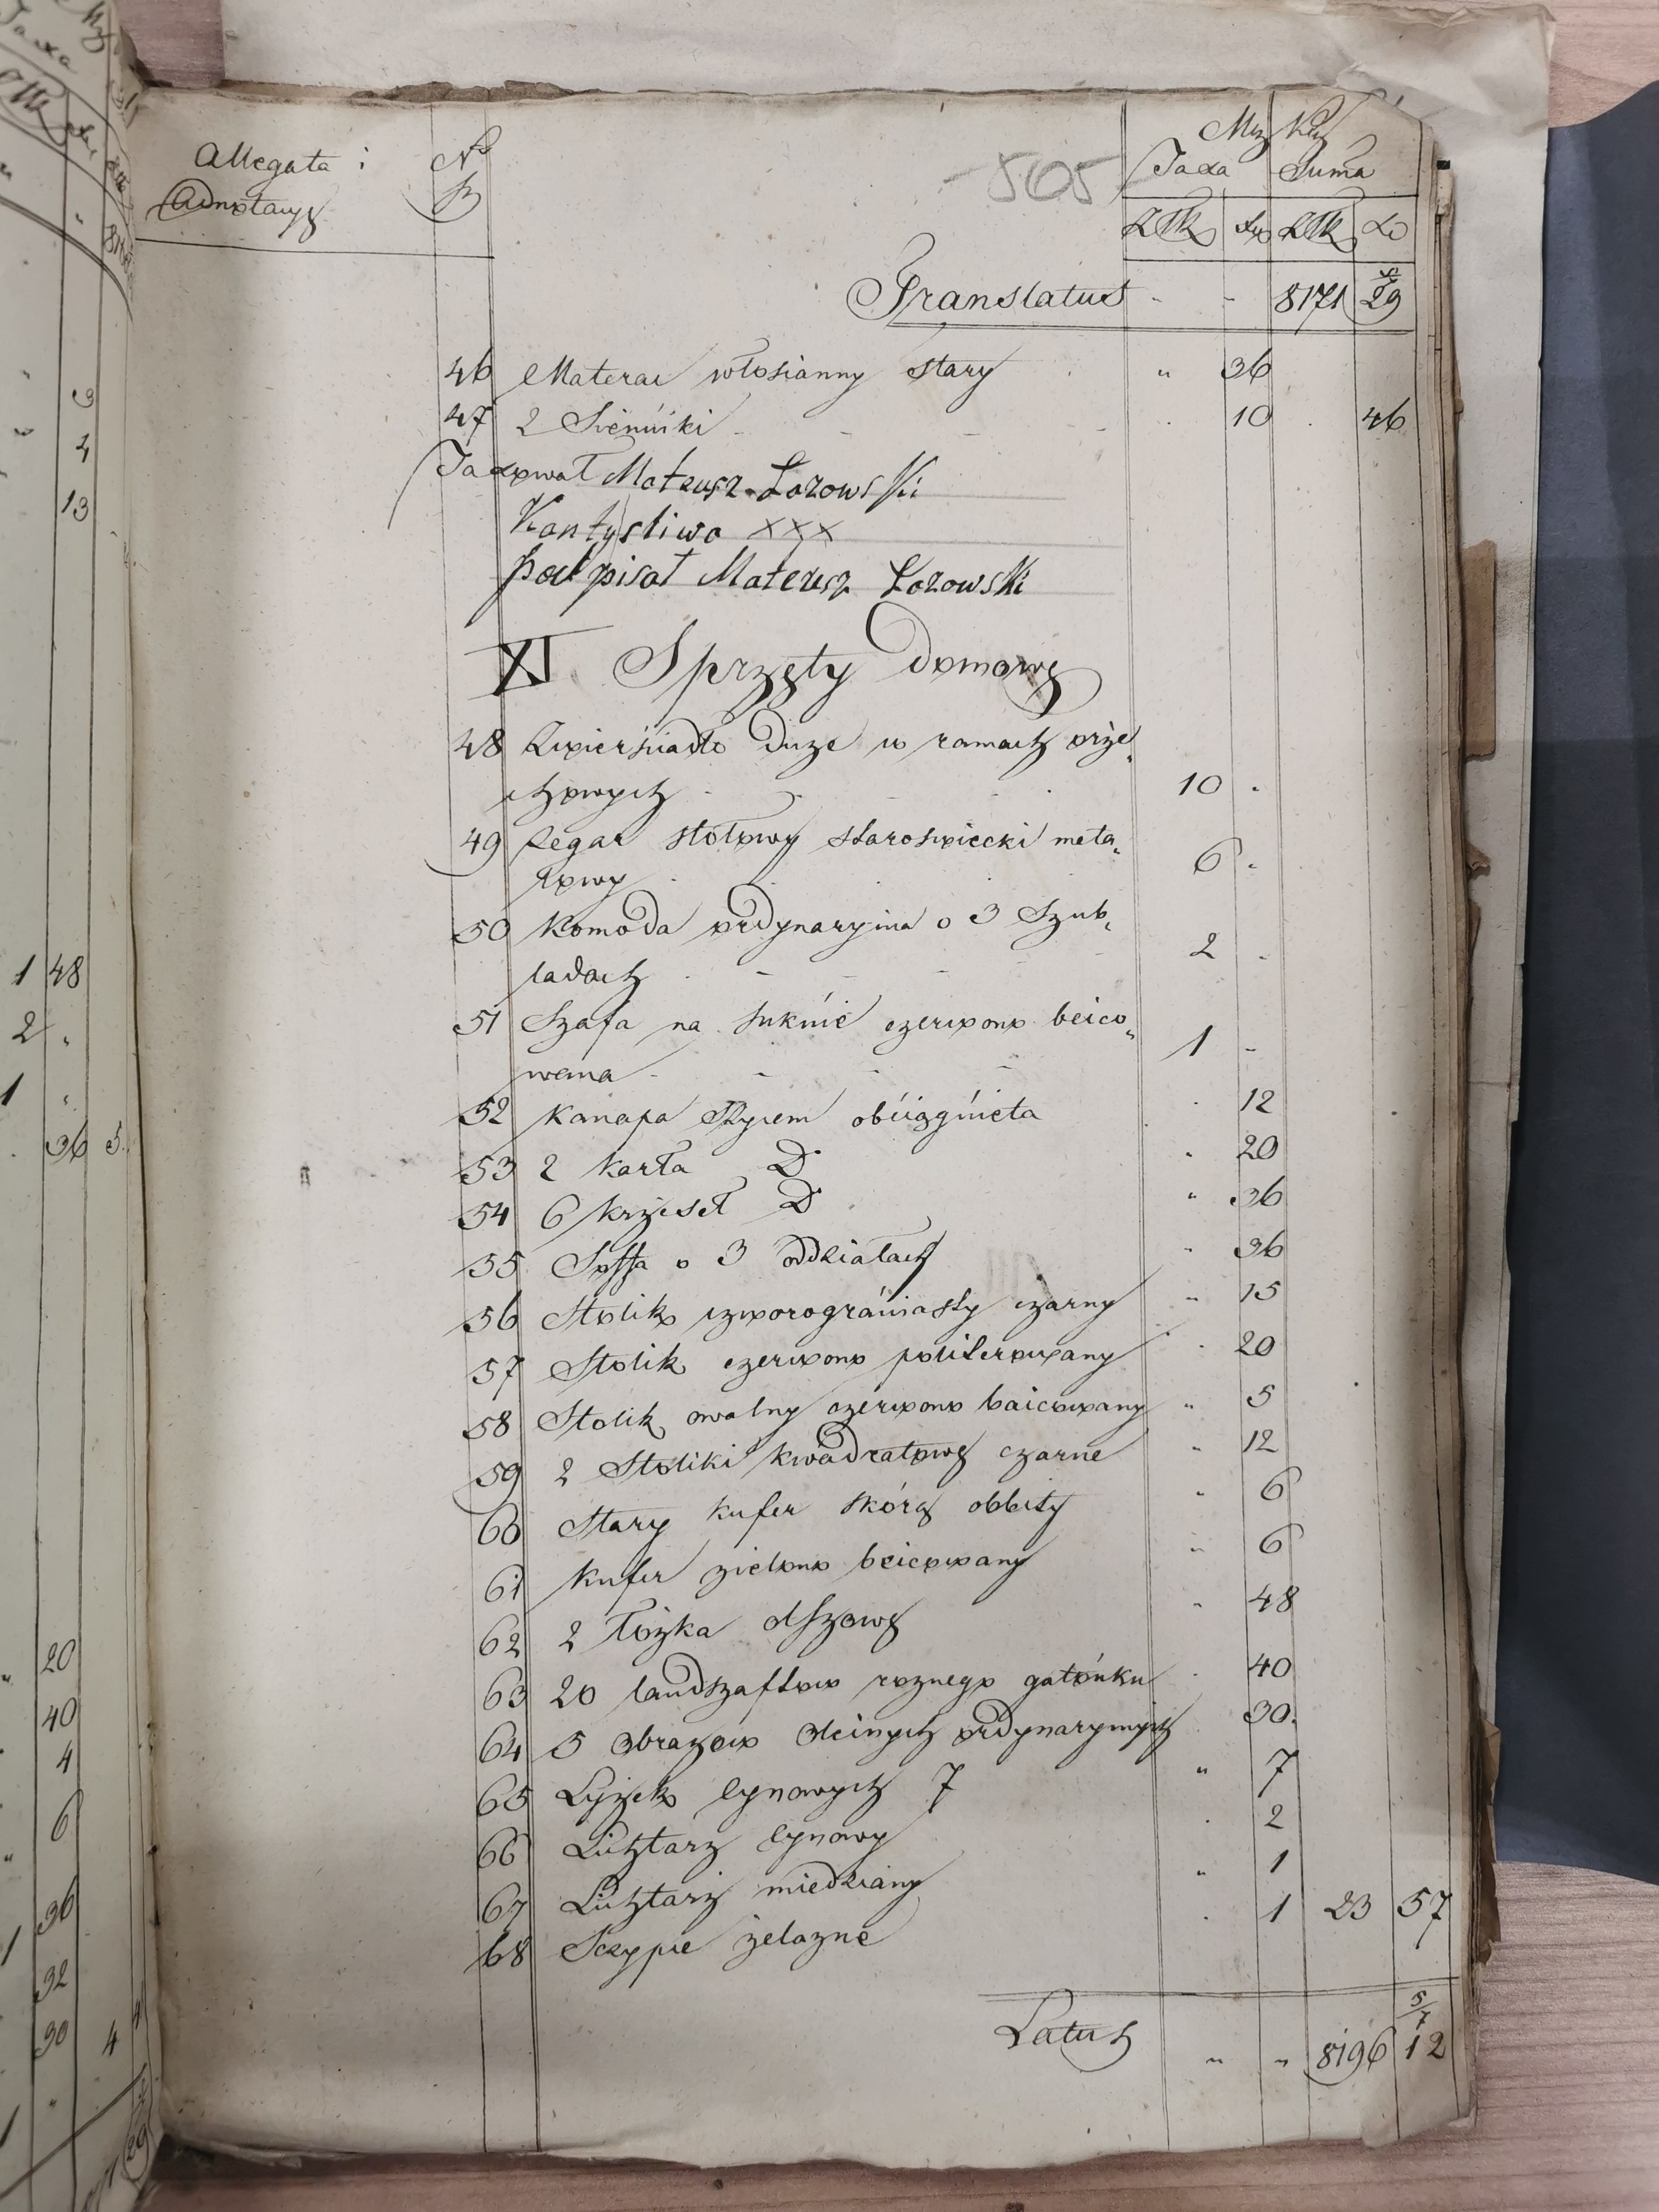 Allegata i
Adnotacye
No
-505-
Taxa Suma
Translatus - - 8171 29
46 Materac włosianny stary " 36
47 2 Sienniki - 10 46
Taxował Mateusz Łozowski
xxx
podpisał Mateusz Łozowski
XI Sprzęty domowe
48 Zwierśiadło duze w ramach orze
chowych 10 -
49 Zegar stołowy staroswiecki meta
lowy 6 -
50 Komoda ordynaryina o 3 Szub
ladach 2 -
51 Szafa na suknie czerwono beico
wana 1 -
52 Kanapa Zycem obciągnieta 12
53 2 karła D 20
54 6 krzeseł D " 36
55 Soffa o 3 oddziałach 36
56 Stolik czworograniasty czarny " 15
57 Stolik czerwono politerowany 20
58 Stolik owalny czerwono baicowany " 5
59 2 Stoliki kwadratowe czarne " 12
60 Stary kufer skórą obbity " 6
61 Kufer zielono beicowany " 6
62 2 łóżka olszowe " 48
63 20 landszaftow roznego gatonku 40
64 5 obrazow oleinych ordynarynnych 30.
65 Lyżek cynowych 7 " 7
66 Lichtarz cynowy 2
67 Lichtarz miedziany " 1
68 Sczypce żelazne 1 23 57
Latus " " 8196 12
1 48
2
1
36
20
40
4
6
36
32
30 4